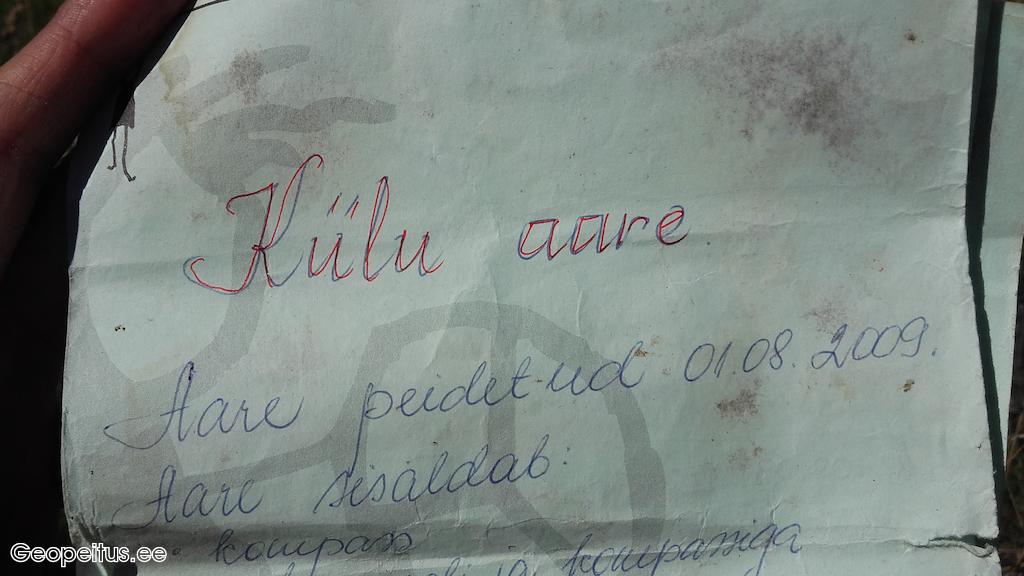 Külu aare
Aare peidetud 01.08.2009.
Aare sisaldab:
kompass
ja kompassiga
Geopeitus.ee